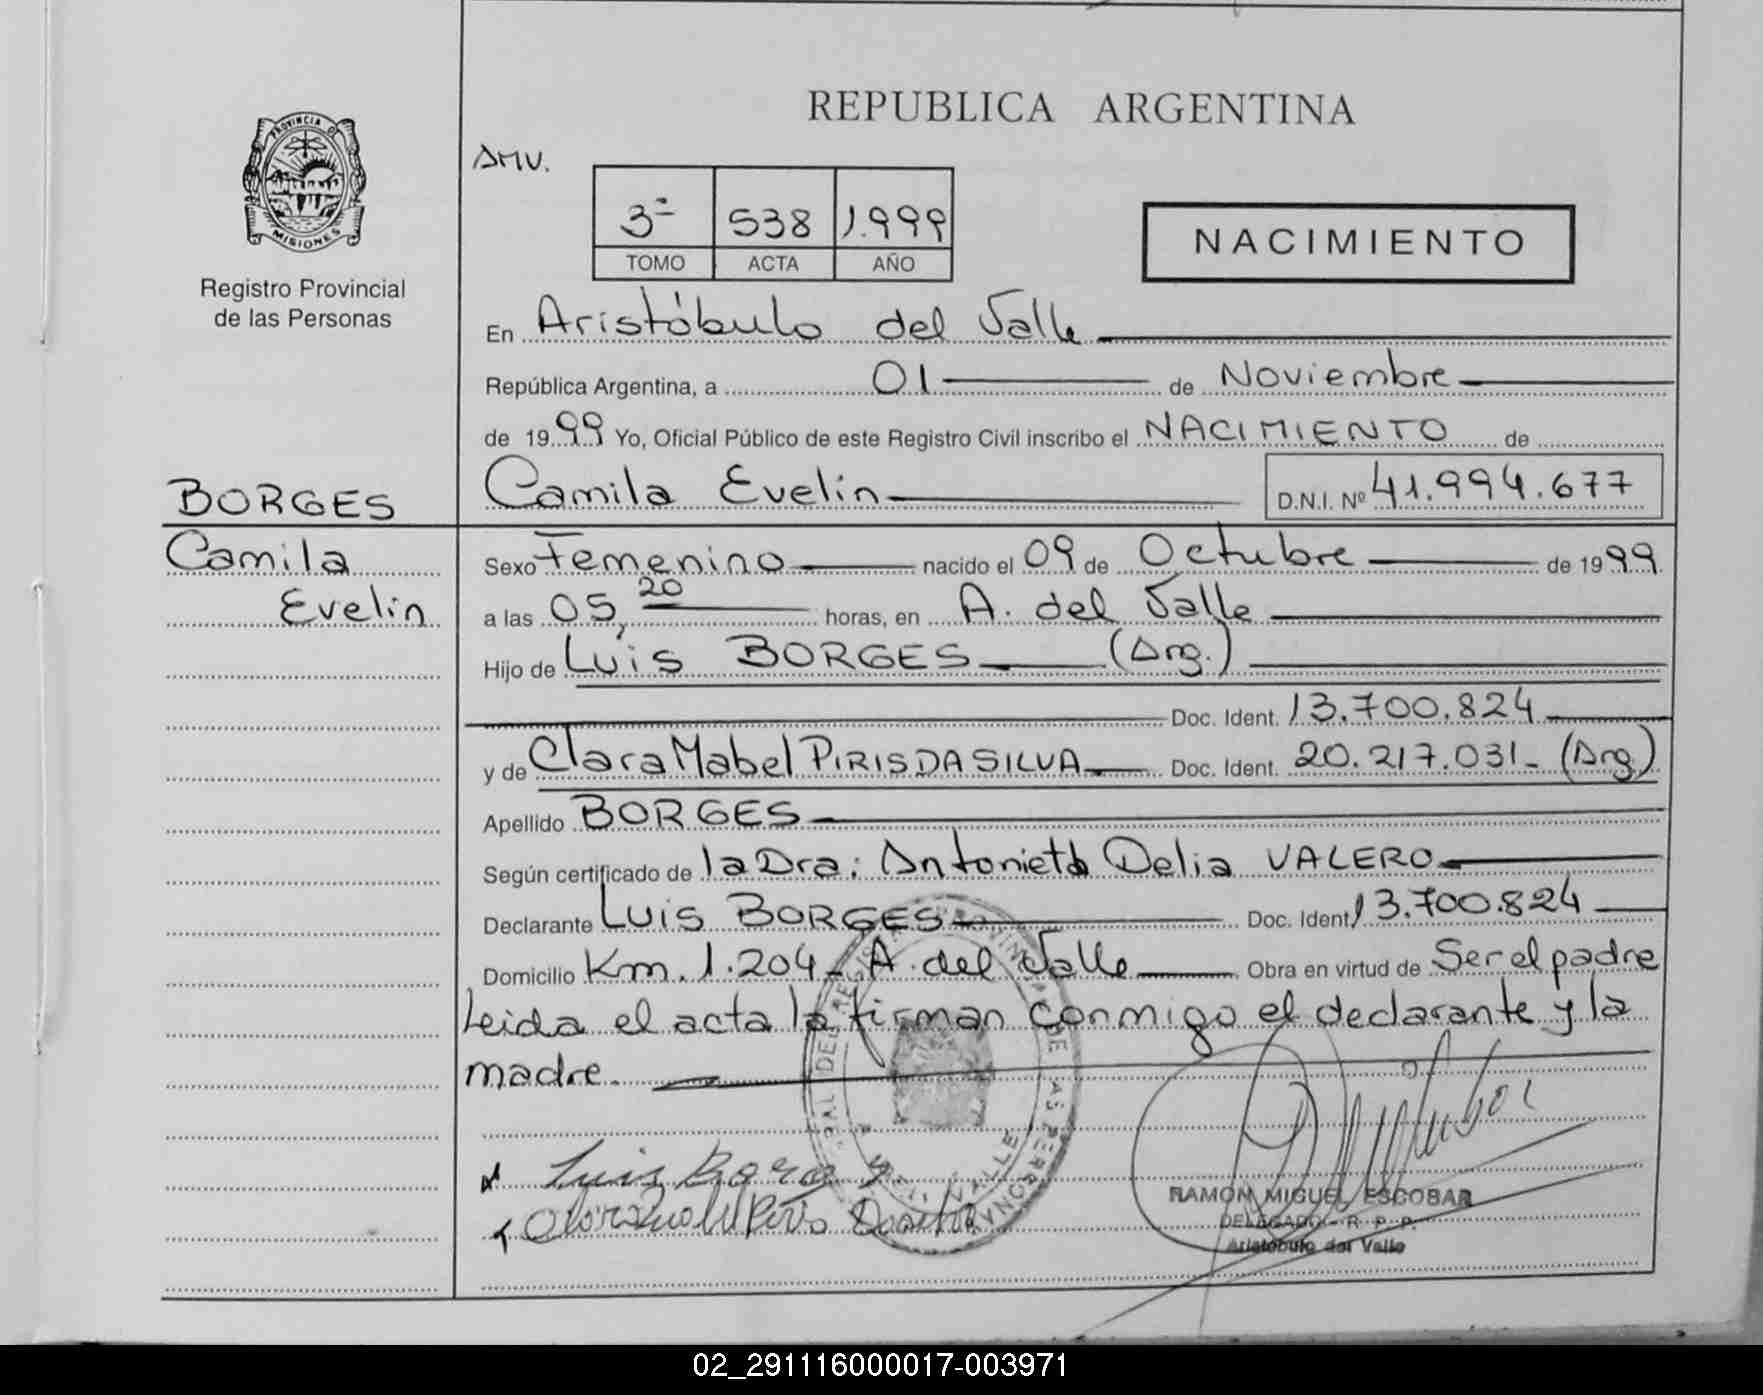 REPUBLICA ARGENTINA
PROVINCIA DE
MISIONES
Registro Provincial
de las Personas
AMV.
3ª 538 1.999
TOMO ACTA AÑO
NACIMIENTO
En Aristóbulo del Valle
República Argentina, a 01 de Noviembre
de 1999 Yo, Oficial Público de este Registro Civil inscribo el NACIMIENTO de
BORGES
Camila Evelin D.N.I. Nº 41.994.677
Camila
Evelin
Sexo Femenino nacido el 09 de Octubre de 1999
a las 05,20 horas, en A. del Valle
Hijo de Luis BORGES (Arg.)
Doc. Ident. 13.700.824
y de Clara Mabel PIRIS DA SILVA Doc. Ident. 20.217.031 - (Arg)
Apellido BORGES
Según certificado de la Dra: Antonieta Delia VALERO
Declarante Luis BORGES Doc. Ident 13.700.824
Domicilio Km. 1.204 - A. del Valle Obra en virtud de Ser el padre
Leida el acta la firman conmigo el declarante y la
madre.
Luis Borges
RAMON MIGUEL ESCOBAR
DELEGADO - R. P. P.
Aristóbulo del Valle
02_291116000017-003971